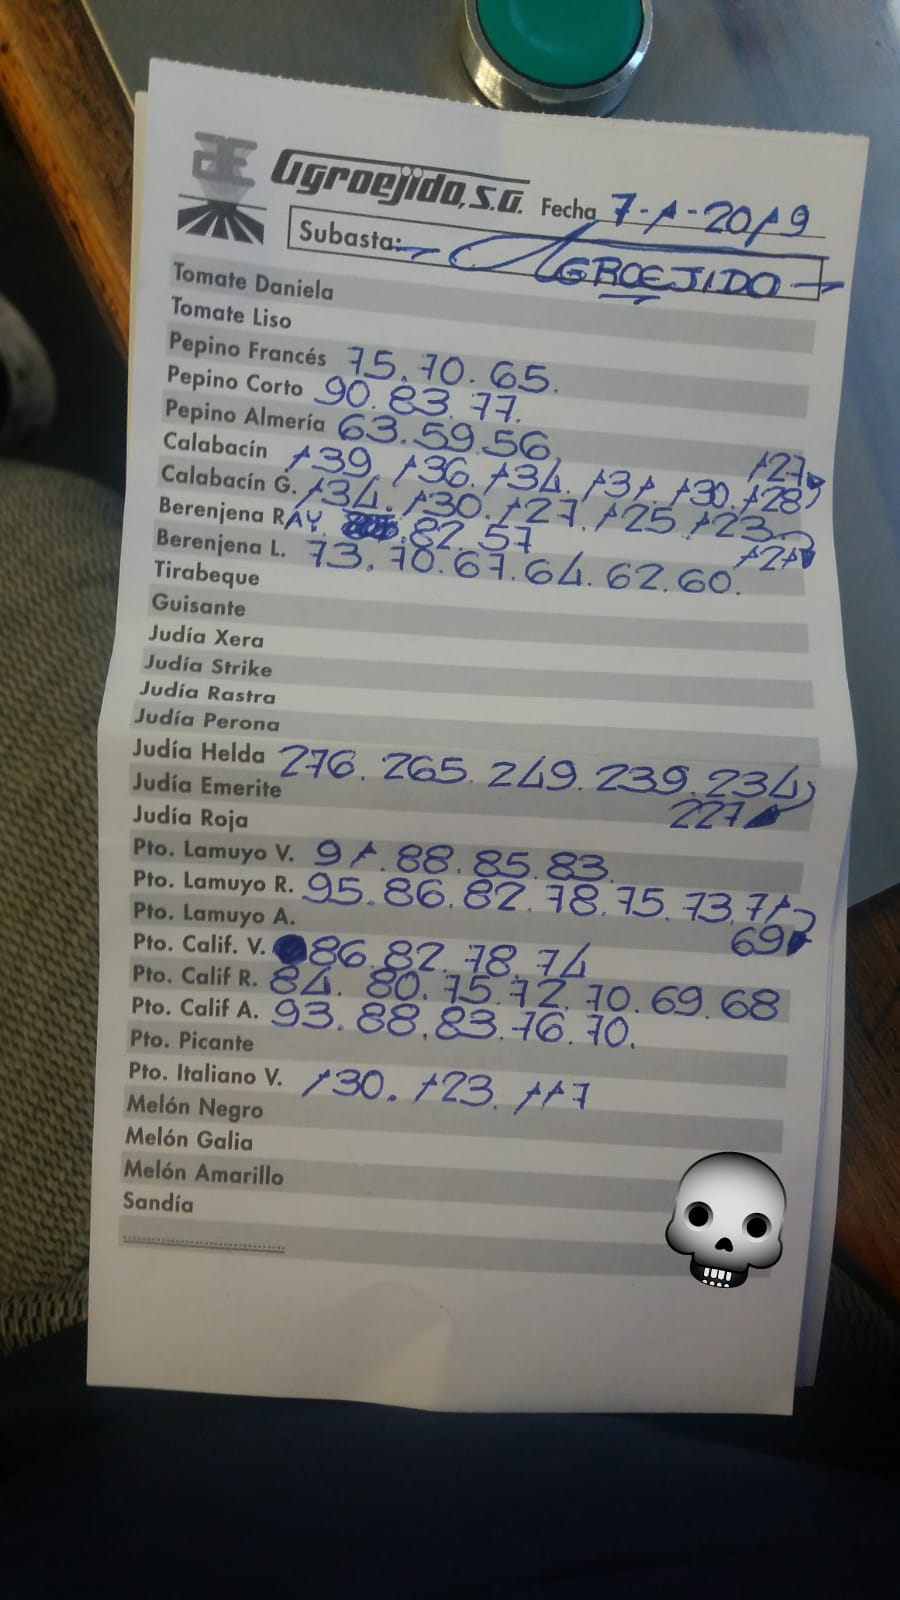 AE Agroejido, S.A. Fecha 7-1-2019
Subasta: AGROEJIDO
Tomate Daniela
Tomate Liso
Pepino Francés 75. 70. 65.
Pepino Corto 90. 83. 77.
Pepino Almería 63. 59. 56.
Calabacín 139. 136. 134. 131. 130. 128 127
Calabacín G. 134. 130. 127. 125 123
Berenjena RAY. 82. 57 121
Berenjena L. 73. 70. 67. 64. 62. 60.
Tirabeque
Guisante
Judía Xera
Judía Strike
Judía Rastra
Judía Perona
Judía Helda 276. 265. 249. 239. 234
Judía Emerite 227
Judía Roja
Pto. Lamuyo V. 91. 88. 85. 83.
Pto. Lamuyo R. 95. 86. 82. 78. 75. 73. 71
Pto. Lamuyo A. 69
Pto. Calif. V. 86. 82. 78. 74
Pto. Calif R. 84. 80. 75. 72. 70. 69. 68
Pto. Calif A. 93. 88. 83. 76. 70.
Pto. Picante
Pto. Italiano V. 130. 123. 117
Melón Negro
Melón Galia
Melón Amarillo
Sandía